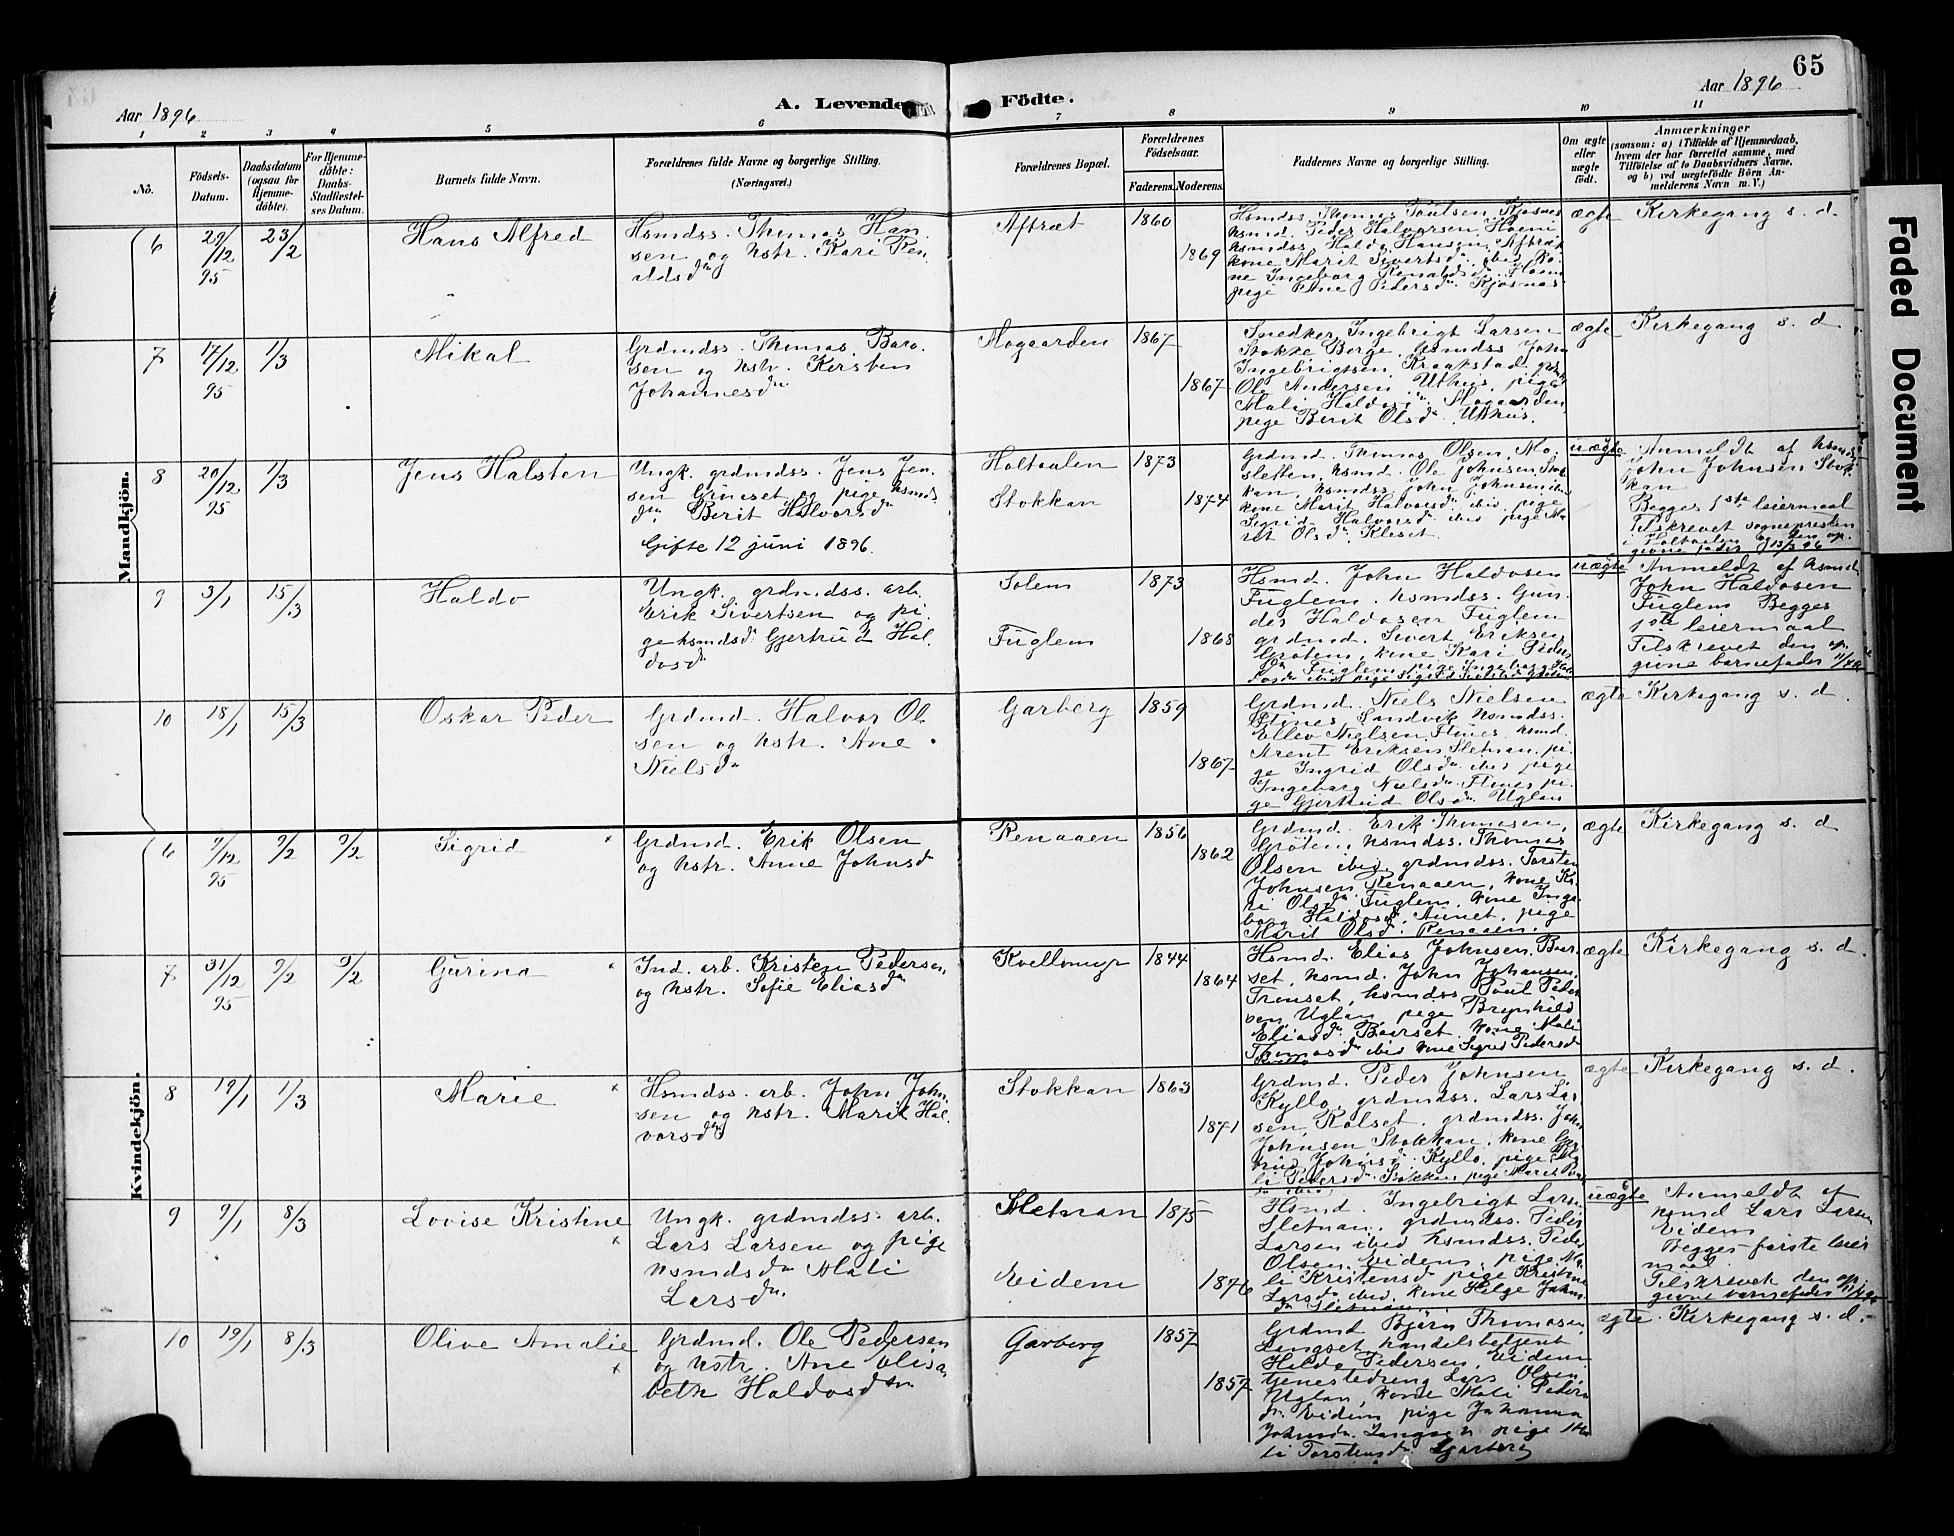 65
Aar 1896
A. Levende
Födte.
Aar 1896
1 2 3 4 5 6 7 8 9 10 11
No.
Födsels-
Datum.
Daabsdatum
(ogsaa for
Hjemme-
döbte).
For Hjemme-
döbte:
Daabs-
Stadfæstel-
ses Datum.
Barnets fulde Navn.
Forældrenes fulde Navne og borgerlige Stilling.
(Næringsvei.)
Forældrenes Bopæl.
Forældrenes
Födselsaar.
Faderens.
Moderens.
Faddernes Navne og borgerlige Stilling.
Om ægte
eller
uægte
födt.
Anmærkninger
(saasom: a) i Tilfælde af Hjemmedaab,
hvem der har forrettet samme, med
Tilföielse af to Daabsvidners Navne,
og b) ved uægtefödte Börn An-
melderens Navn m. V.)
Faded Document
Mandkjön.
6
29/12
95
23/2
Hans Alfred
Hsmdss. Thomas Han-
sen og hstr. Kari Ren-
aldsdr
Aftræt
1860
1869
Hsmdss. Thomas Poulsen Kjøsnes
hsmd. Peder Halvorsen Hoem
hsmdss. Haldo Hansen Aftræt
kone Marit Sivertsdr ibid ko-
ne Ingeborg Renaldsdr Hoem
pige Ane Pedersdr Kjøsnes
ægte
Kirkegang s. d.
7
17/12
95
1/3
Mikal
Grdmdss. Thomas Baro-
sen og hstr. Kersten
Johannesdr
Mogaarden
1867
1867
Snedker Ingebrigt Larsen
Stokke Berge, Gsmdss John
Ingebrigtsen Kraakstad, grdmds
Ole Andersen Uthus, pige
Mali Haldosdr Mogaarden,
pige Berit Olsdr Uthus.
ægte
Kirkegang s. d.
8
20/12
95
1/3
Jens Halsten
Ungk. grdmdss. Jens Jen-
sen Grønset og pige hsmds
dr Berit Halvorsdr
Gifte 12 juni 1896.
Holtaalen
Stokkan
1873
1874
Grdmd. Thomas Olsen Mo-
sletten, hsmd. Ole Johnsen Stok-
kan, hsmdss. John Johnsen ibid
kone Marit Halvorsdr ibid, pige
Sigrid Halvorsdr ibid pige Ma-
rit Olsdr Kleset.
uægte
Anmeldt af hsmds
John Johnsen Stok-
kan
Begges 1ste leiermaal
Tilskrevet sognepresten
i Holtaalen og den op-
givne fader 13/3 96
9
3/1
15/3
Haldo
Ungk. grdmdss. arb.
Erik Sivertsen og pi-
ge hsmdsdr Gjertrud Hal-
dosdr
Solem
Fuglem
1873
1868
Hsmd. John Haldosen
Fuglem, hsmdss. Gun-
der Haldosen Fuglem
grdmd. Sivert Eriksen
Grøtem, kone Kari Peders-
dr Fuglem, pige Ingeborg Hal-
dosdr ibid pige Sigrid
uægte
Anmeldt af hsmd
John Haldosen
Fuglem Begges
1ste leiermaal
Tilskrevet den op-
givne barnefader 11/4 96
10
18/1
15/3
Oskar Peder
Grdmd. Halvor Ol-
sen og hstr. Ane
Nielsdr
Garberg
1859
1867
Grdmd. Niels Nielsen
Stines, Sandvik hsmdss.
Ellev Nielsen Flines, hsmd.
Arent Eriksen Sletnan, pi-
ge Ingrid Olsdr ibid pige
Ingeborg Nielsdr Flines pi-
ge Gjertrud Olsdr Uglan
ægte
Kirkegang s. d.
Kvindekjön.
6
7/12
95
9/2
9/2
Sigrid
Grdmd. Erik Olsen
og hstr. Anne Johnsdr
Renaaen
1856
1862
Grdmd. Erik Thomasen,
Grøtem, hsmdss. Thomas
Olsen ibid, grdmdss. Torsten
Johnsen Renaaen, kone Ka-
ri Olsdr Fuglem, kone Inge-
borg Haldosdr Aunet, pige
Marit Olsdr Renaaen.
ægte
Kirkegang s. d
7
31/12
95
9/2
9/2
Gurina
Ind. arb. Kristen Pedersen,
og hstr. Sofie Eliasdr
Kvellomyr
1844
1864
Hsmd. Elias Johnsen Bur-
set, hsmd. John Johansen,
Trønset, hsmdss Poul Peder-
sen Uglan, pige Brynhild
Eliasdr Baarset, kone Mali
Thomasdr ibid kone Sigrid Pedersdr
ægte
Kirkegang s. d.
8
19/1
1/3
Marie
Hsmdss. arb. John John-
sen og hstr. Marit Hal-
vorsdr
Stokkan
1863
1871
Grdmd. Peder Johnsen,
Kyllo, grdmdss. Lars Lar-
sen, Rolset, grdmdss. John
Johnsen Stokkan, kone Gjer-
trud Johnsdr Kyllo, pige Ma-
li Pedersdr Stokkan, pige Marit
ægte
Kirkegang s. d.
9
9/1
8/3
Lovise Kristine
Ungk. grdmdss. arb.
Lars Larsen og pige
hsmdsdr Mali
Larsdr
Sletnan
Eidem
1875
1876
Hsmd. Ingebrigt Larsen
Sletnan, grdmdss. Peder
Larsen ibid hsmdss. Peder
Olsen Eidem, pige Ma-
li Kristensdr pige Kristine
Larsdr ibid, kone Helge Johns-
dr Sletnan
uægte
Anmeldt af
hsmd Lars Larsen
Eidem
Begges første leier-
maal
Tilskrevet den op-
givne barnefader 11/4 96
10
19/1
8/3
Olive Amalie
Grdmd. Ole Pedersen
og hstr. Ane Elisa-
beth Haldosdr
Garberg
1857
1857
Grdmd Bjørn Thomasen
Langset, handelsbetjent
Haldo Pedersen, Eidem
tjenestedreng Lars Olsen,
Uglan, kone Mali Peders-
dr Eidem pige Johanna
Johnsdr Langset pige Ma-
li Torstensdr Garberg
ægte
Kirkegang s. d.